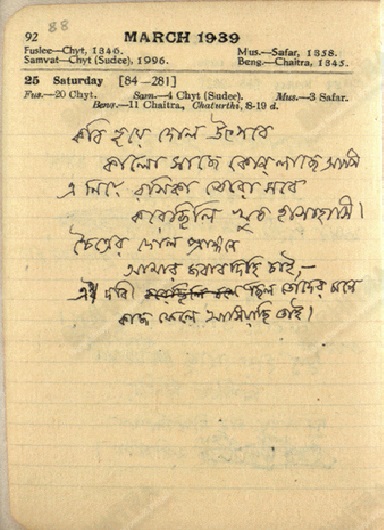 88
92 MARCH 1939
Fuslee—Chyt, 1346. Mus.—Safar, 1358.
Samvat—Chyt (Sudee), 1996. Beng.—Chaitra, 1345.
25 Saturday [84—281]
Fus.—20 Chyt. Sam.—4 Chyt (Sudee). Mus.—3 Safar.
Beng.—11 Chaitra, Chaturthi, 8-19 d.
কবি হয়ে দোল উৎসবে
কালো সাজে কোন্ লাজে আসি
এ নিয়ে রসিকা তোরা সবে
করেছিলি খুব হাসাহাসি।
চৈত্রের দোল প্রাঙ্গণে
আমার জবাবদিহি চাই,—
এই দাবী ছিল তোদের মনে
কাজ ফেলে আসিয়াছি তাই।